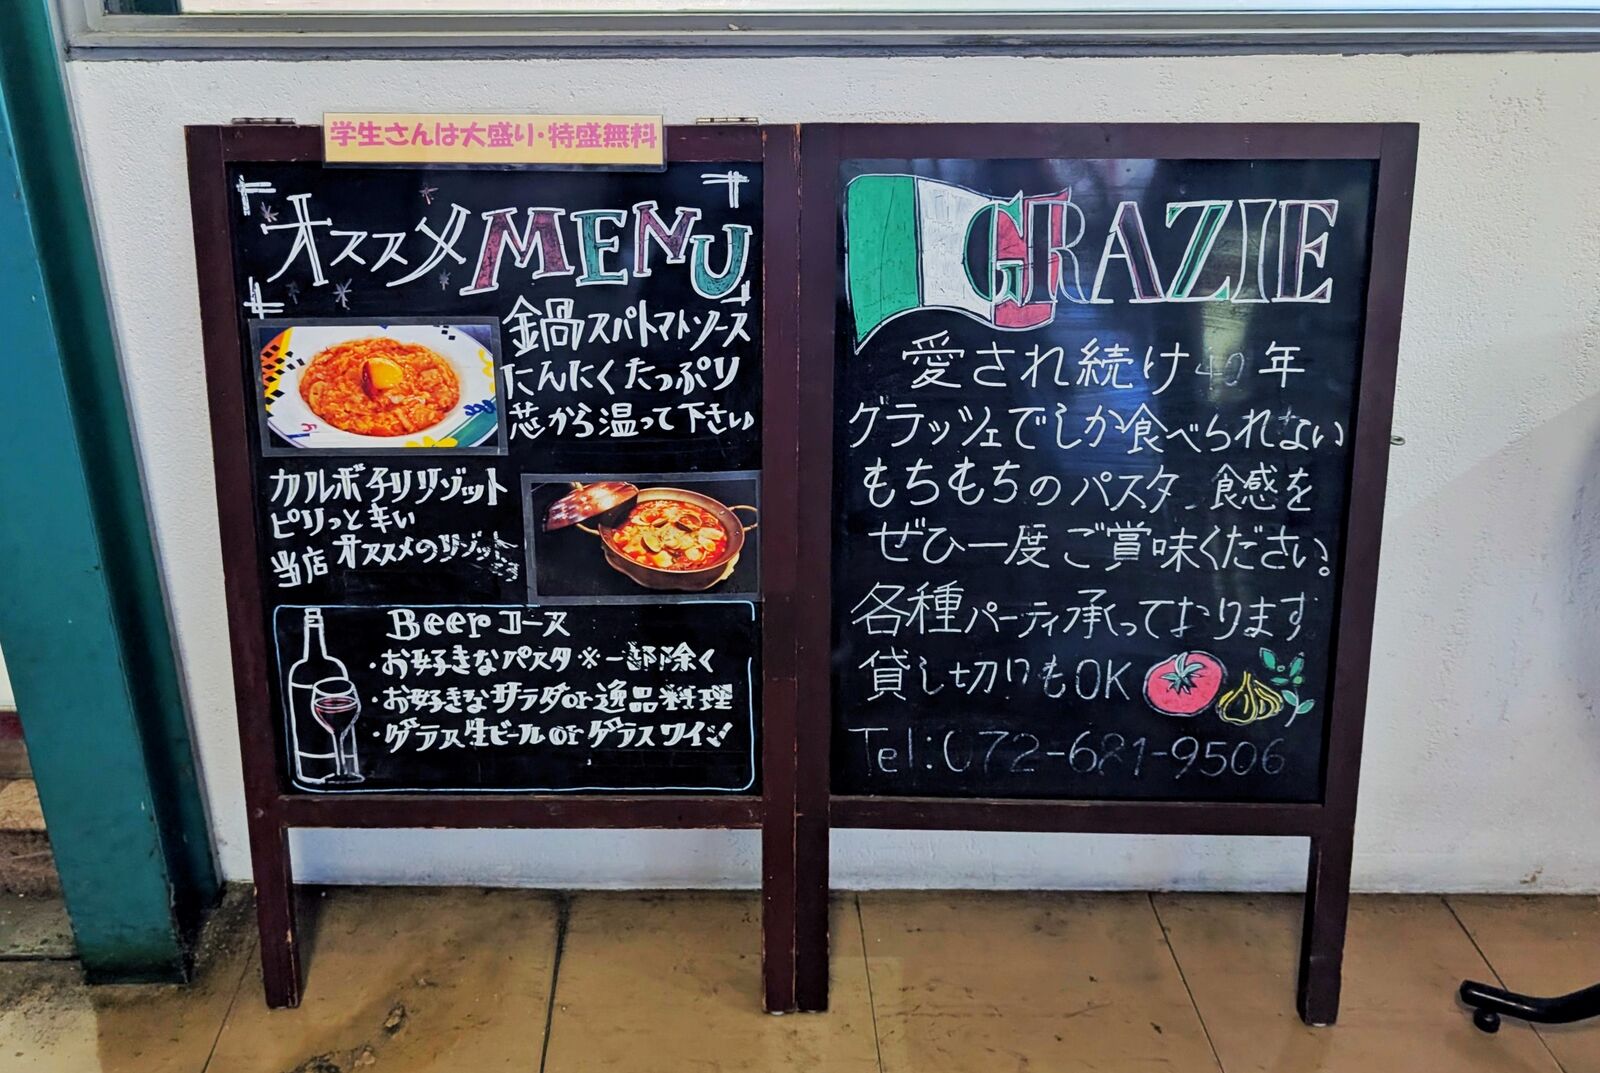 学生さんは大盛り・特盛無料
オススメMENU
金鍋スパトマトソース
にんにくたっぷり
芯から温って下さい
カルボチリリゾット
ピリっと辛い
当店オススメのリゾット
Beerコース
・お好きなパスタ※一部除く
・お好きなサラダor逸品料理
・グラス生ビールorグラスワイン
GRAZIE
愛され続け40年
グラッツェでしか食べられない
もちもちのパスタ、食感を
ぜひ一度ご賞味ください。
各種パーティ承っております
貸し切りもOK
Tel:072-681-9506